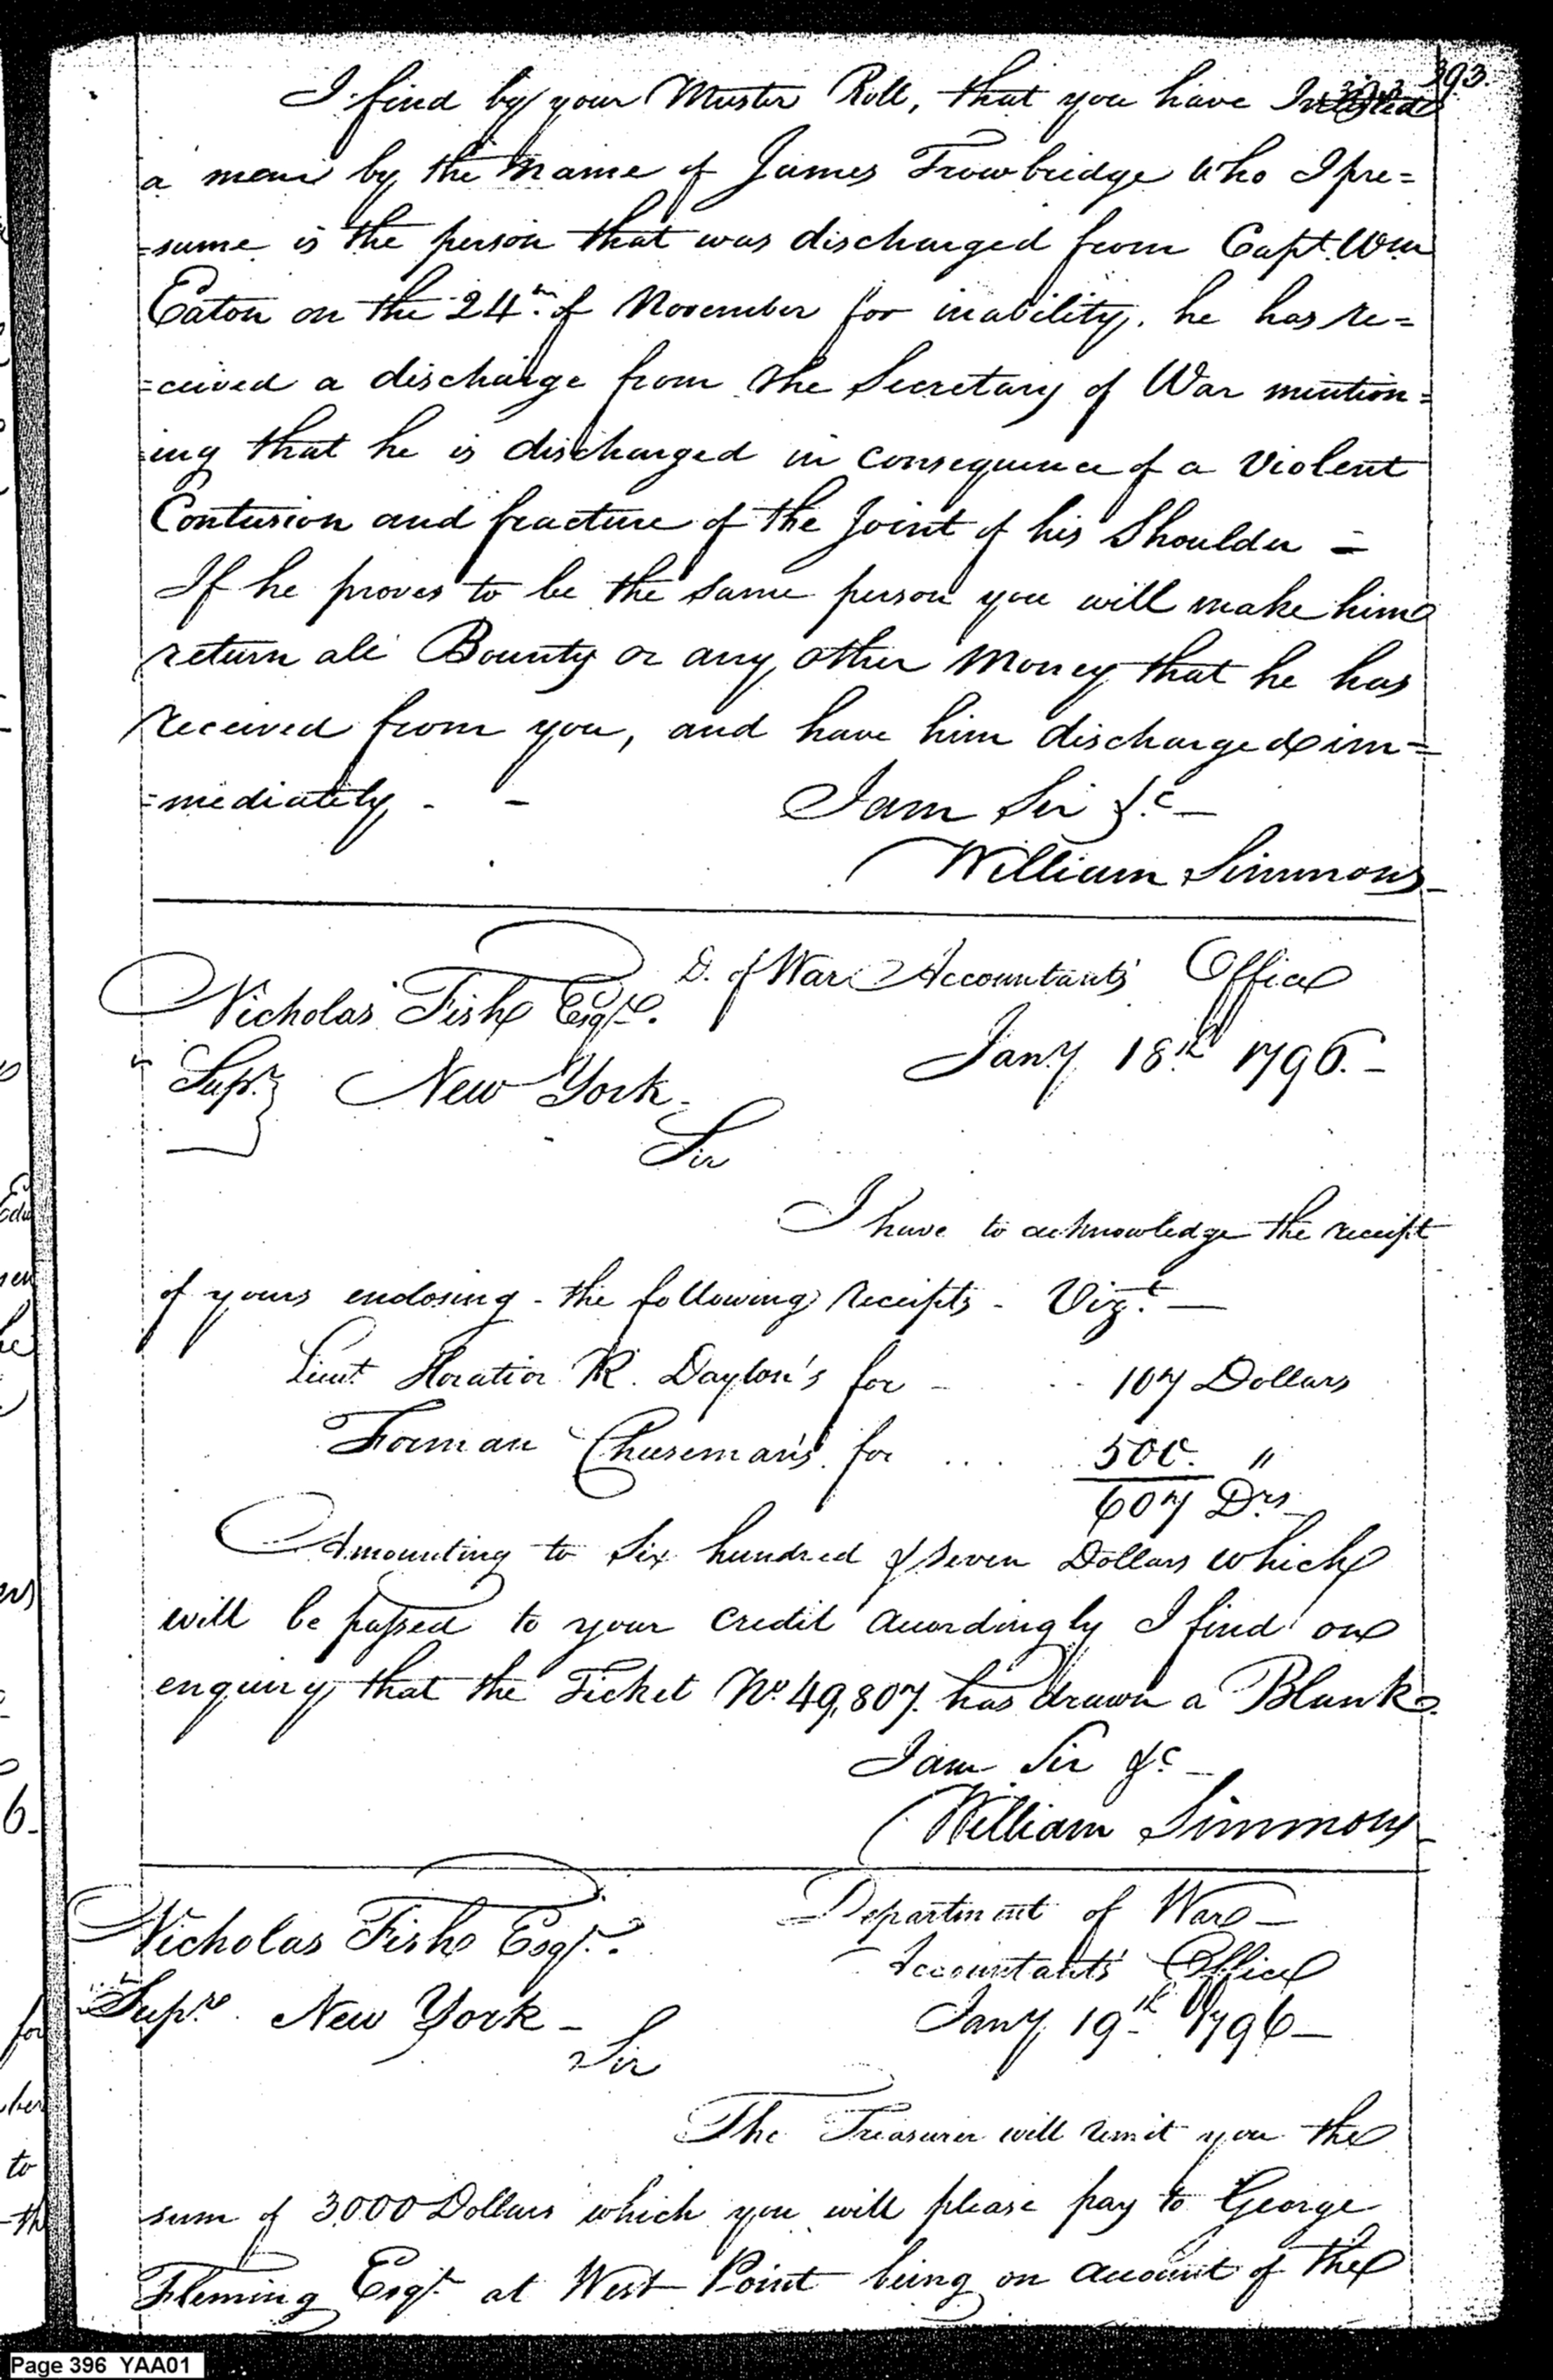 393.
I find by your Muster Roll, that you have Inlisted
a man by the name of James Trowbridge who I pre=
=sume is the person that was discharged from Capt. Wm
Eaton on the 24th. of November for inability. he has re=
=ceived a discharge from the Secretary of War mention=
=ing that he is discharged in consequence of a Violent
Contusion and fracture of the Joint of his Shoulder =
If he proves to be the same person you will make him
return all Bounty or any other Money that he has
received from you, and have him discharged im=
=mediately - -
I am Sir &c-
William Simmons
D. of War Accountants Office
Nicholas Fish Esqre.
Jany 18th 1796.-
Supr. New York-
Sir
I have to acknowledge the receipt
of yours enclosing - the following receipts - Vizt. -
Lieut. Horatio R. Dayton's for - - - 107 Dollars
Forman Cheeseman's for ... 500. "
607 Drs
Amounting to Six hundred & seven Dollars which
will be passed to your credit accordingly I find on
enquiry that the Ticket No. 49,807. has drawn a Blank.
I am Sir &c-
William Simmons
Department of War-
Nicholas Fish Esqr.
Accountants Office
Supr. New York -
Jany 19th 1796-
Sir
The Treasurer will remit you the
sum of 3000 Dollars which you will please pay to George
Fleming Esqr. at West Point being on account of the
Page 396 YAA01